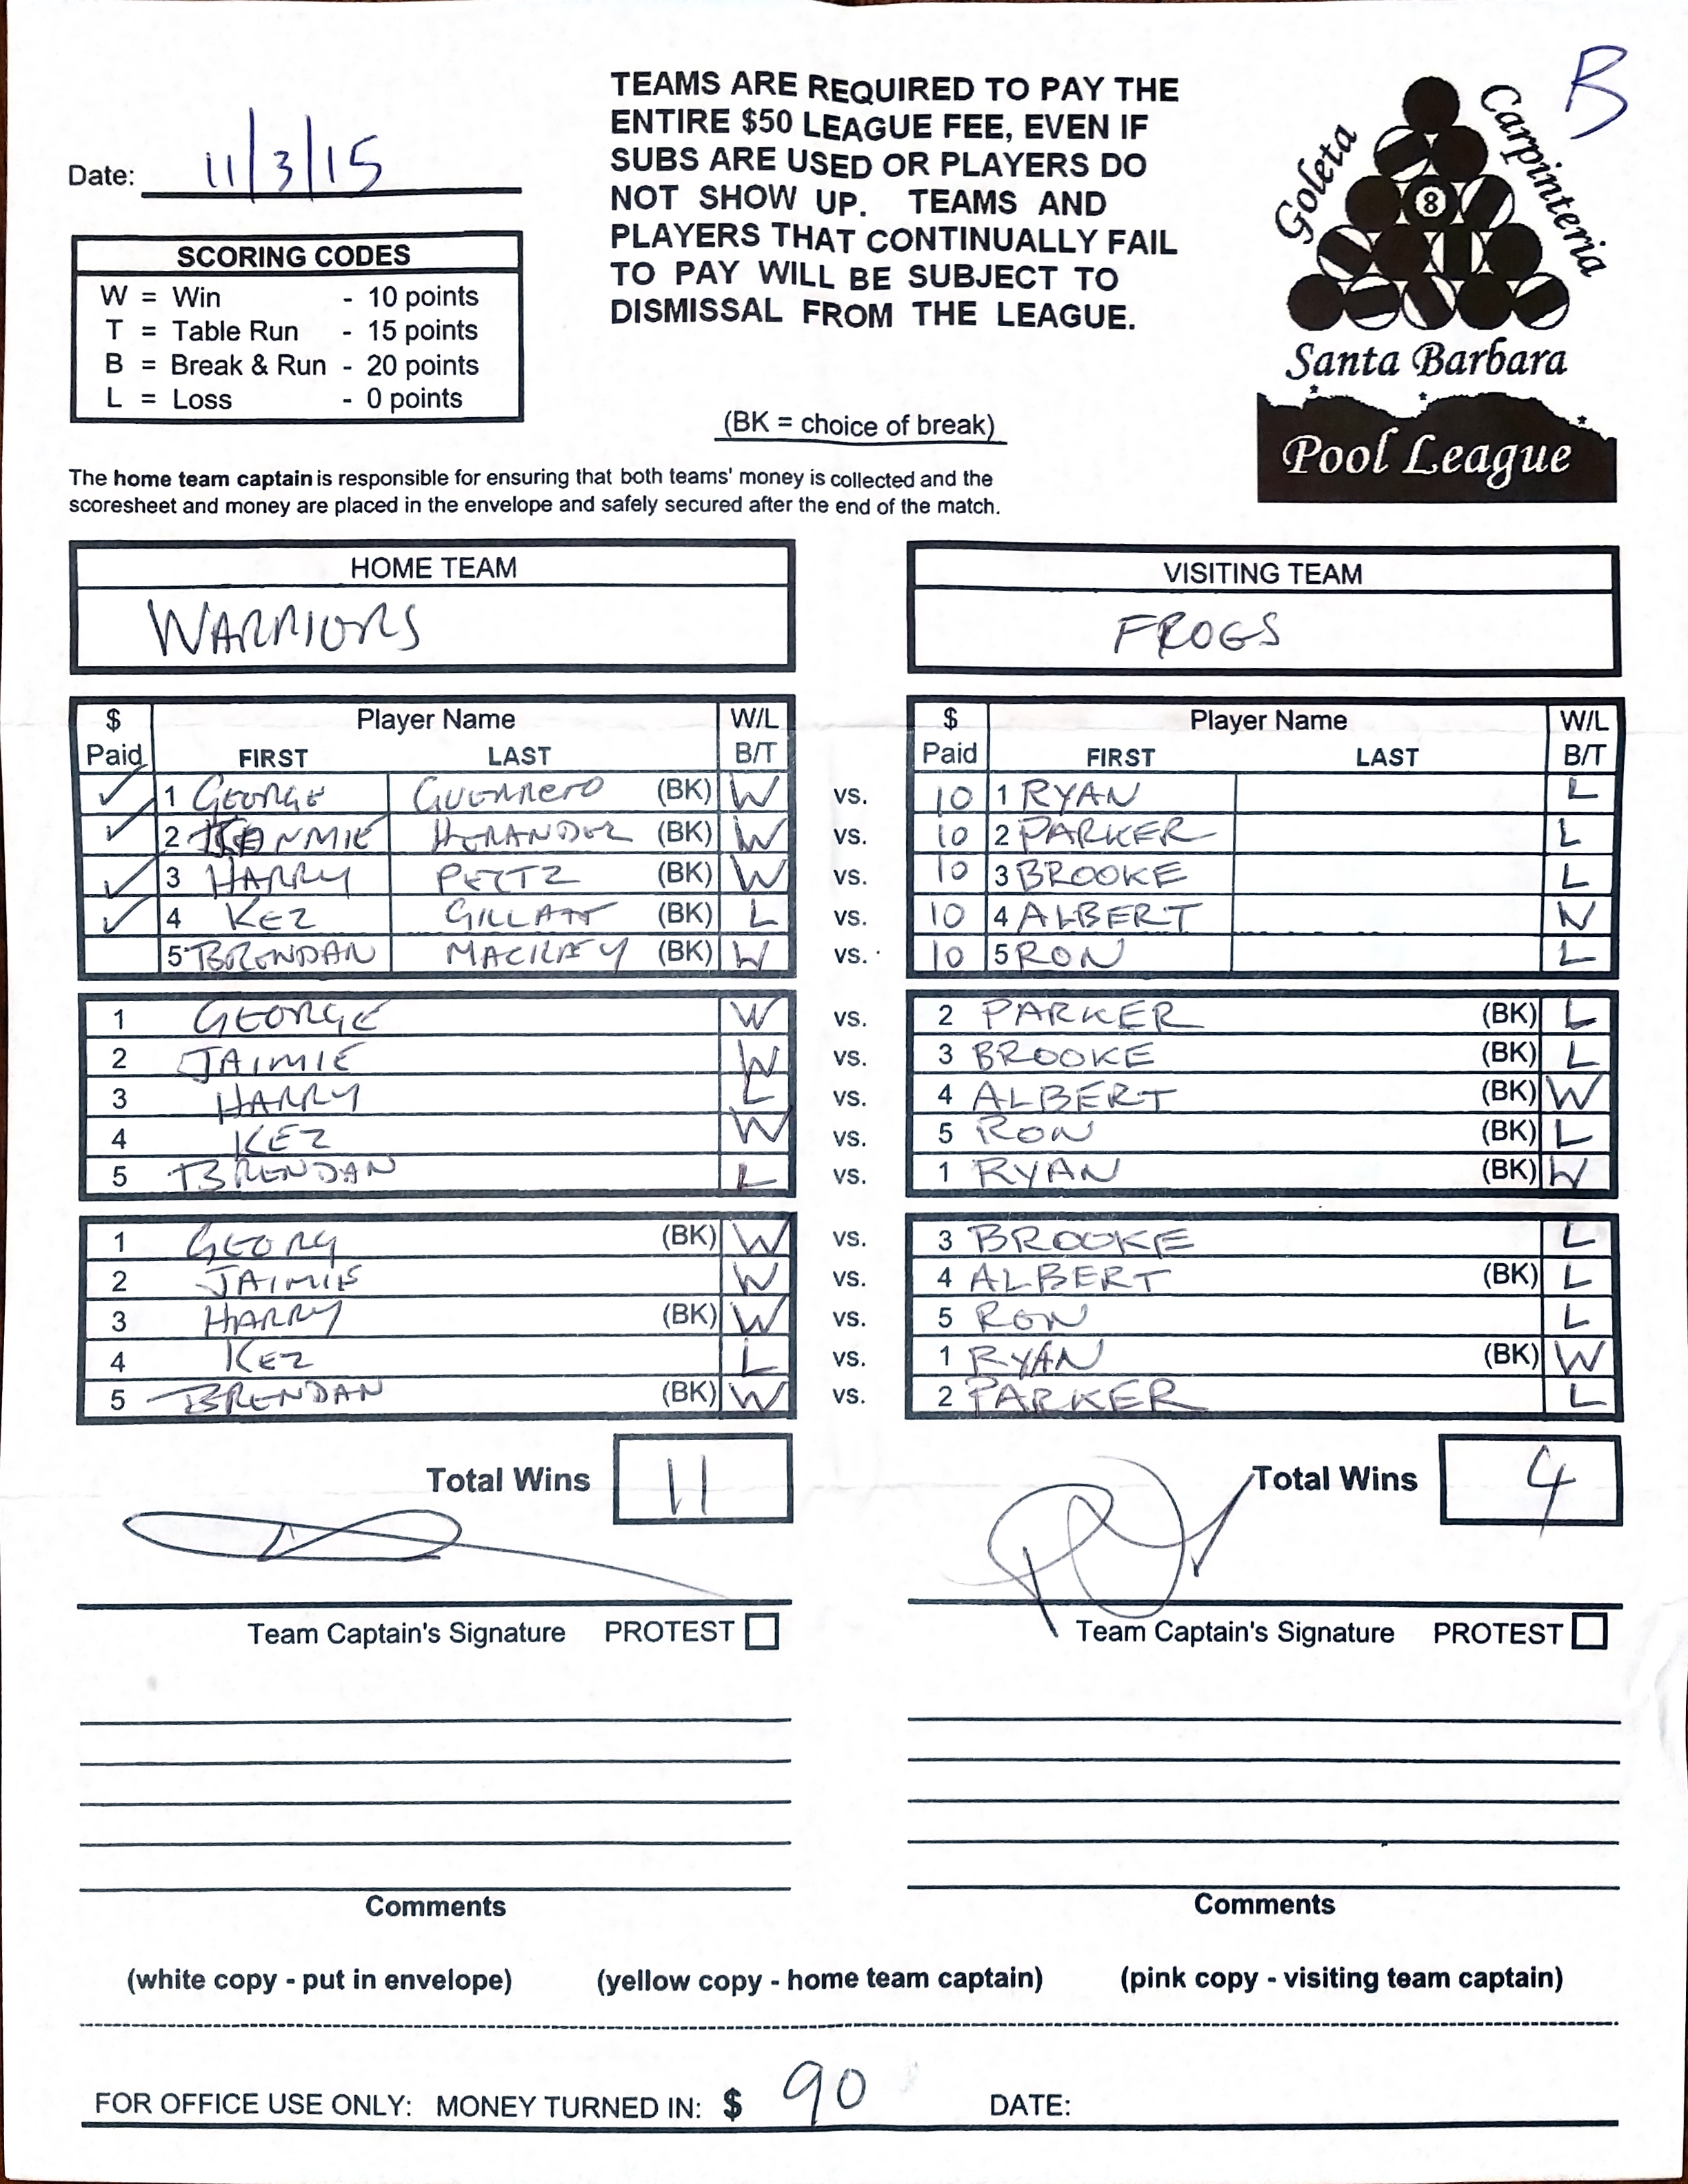 B
TEAMS ARE REQUIRED TO PAY THE
ENTIRE $50 LEAGUE FEE, EVEN IF
SUBS ARE USED OR PLAYERS DO
NOT SHOW UP. TEAMS AND
PLAYERS THAT CONTINUALLY FAIL
TO PAY WILL BE SUBJECT TO
DISMISSAL FROM THE LEAGUE.
Date: 11/3/15
SCORING CODES
W = Win - 10 points
T = Table Run - 15 points
B = Break & Run - 20 points
L = Loss - 0 points
(BK = choice of break)
Goleta
Carpinteria
8
Santa Barbara
Pool League
The home team captain is responsible for ensuring that both teams' money is collected and the
scoresheet and money are placed in the envelope and safely secured after the end of the match.
HOME TEAM VISITING TEAM
WARRIORS FROGS
$ Player Name W/L $ Player Name W/L
Paid FIRST LAST B/T Paid FIRST LAST B/T
✓ 1 GEORGE GUERRERO (BK) W vs. 10 1 RYAN L
✓ 2 (BK) W vs. 10 2 PARKER L
✓ 3 HARRY (BK) W vs. 10 3 BROOKE L
✓ 4 KEZ GILLATT (BK) L vs. 10 4 ALBERT W
5 BRENDAN (BK) W vs. 10 5 RON L
1 GEORGE W vs. 2 PARKER (BK) L
2 JAIMIE W vs. 3 BROOKE (BK) L
3 HARRY L vs. 4 ALBERT (BK) W
4 KEZ W vs. 5 RON (BK) L
5 BRENDAN L vs. 1 RYAN (BK) W
1 GEORG (BK) W vs. 3 BROOKE L
2 JAIMIE W vs. 4 ALBERT (BK) L
3 HARRY (BK) W vs. 5 RON L
4 KEZ L vs. 1 RYAN (BK) W
5 BRENDAN (BK) W vs. 2 PARKER L
Total Wins 11 Total Wins 4
Team Captain's Signature PROTEST Team Captain's Signature PROTEST
Comments Comments
(white copy - put in envelope) (yellow copy - home team captain) (pink copy - visiting team captain)
FOR OFFICE USE ONLY: MONEY TURNED IN: $ 90 DATE: